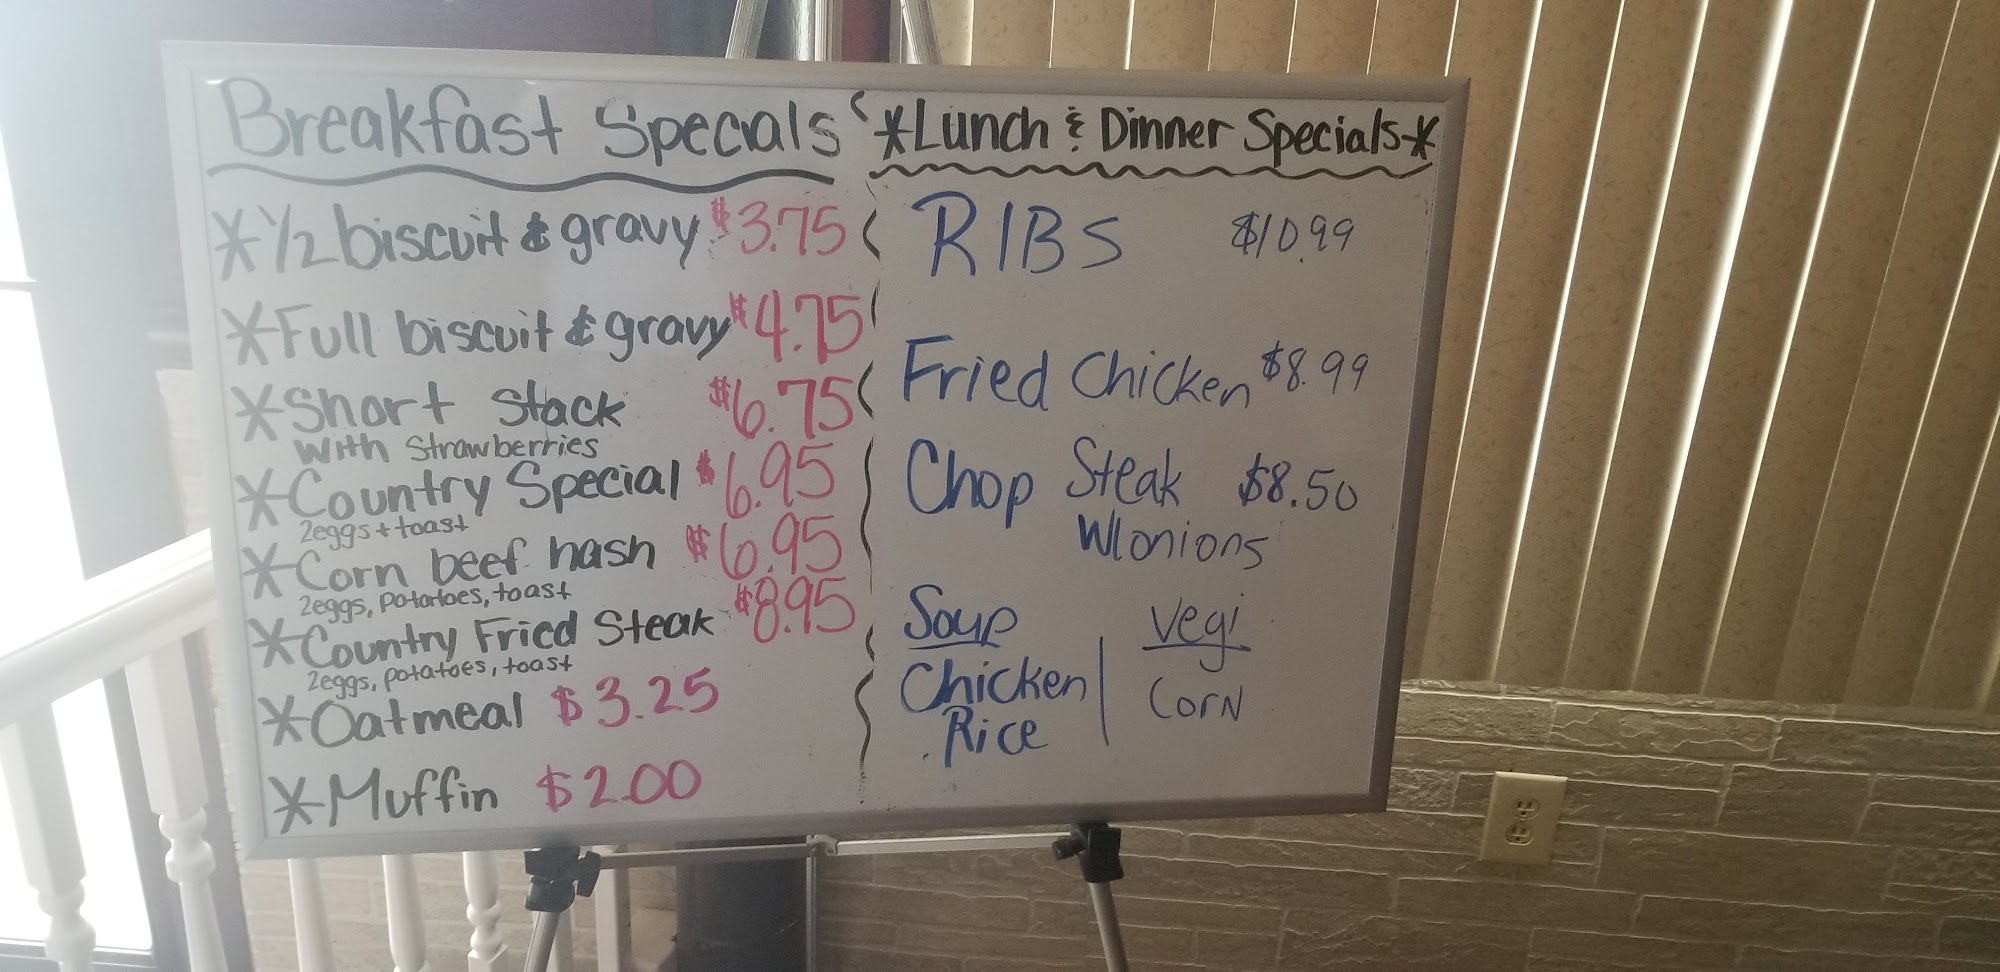 Breakfast Specials
*1/2 biscuit & gravy $3.75
*Full biscuit & gravy $4.75
*Short stack $6.75
with strawberries
*Country Special $6.95
2eggs + toast
*Corn beef hash $6.95
2eggs, potatoes, toast
*Country Fried Steak $8.95
2eggs, potatoes, toast
*Oatmeal $3.25
*Muffin $2.00
*Lunch & Dinner Specials*
RIBS $10.99
Fried Chicken $8.99
Chop Steak $8.50
W/onions
Soup
Chicken
Rice
Vegi
Corn